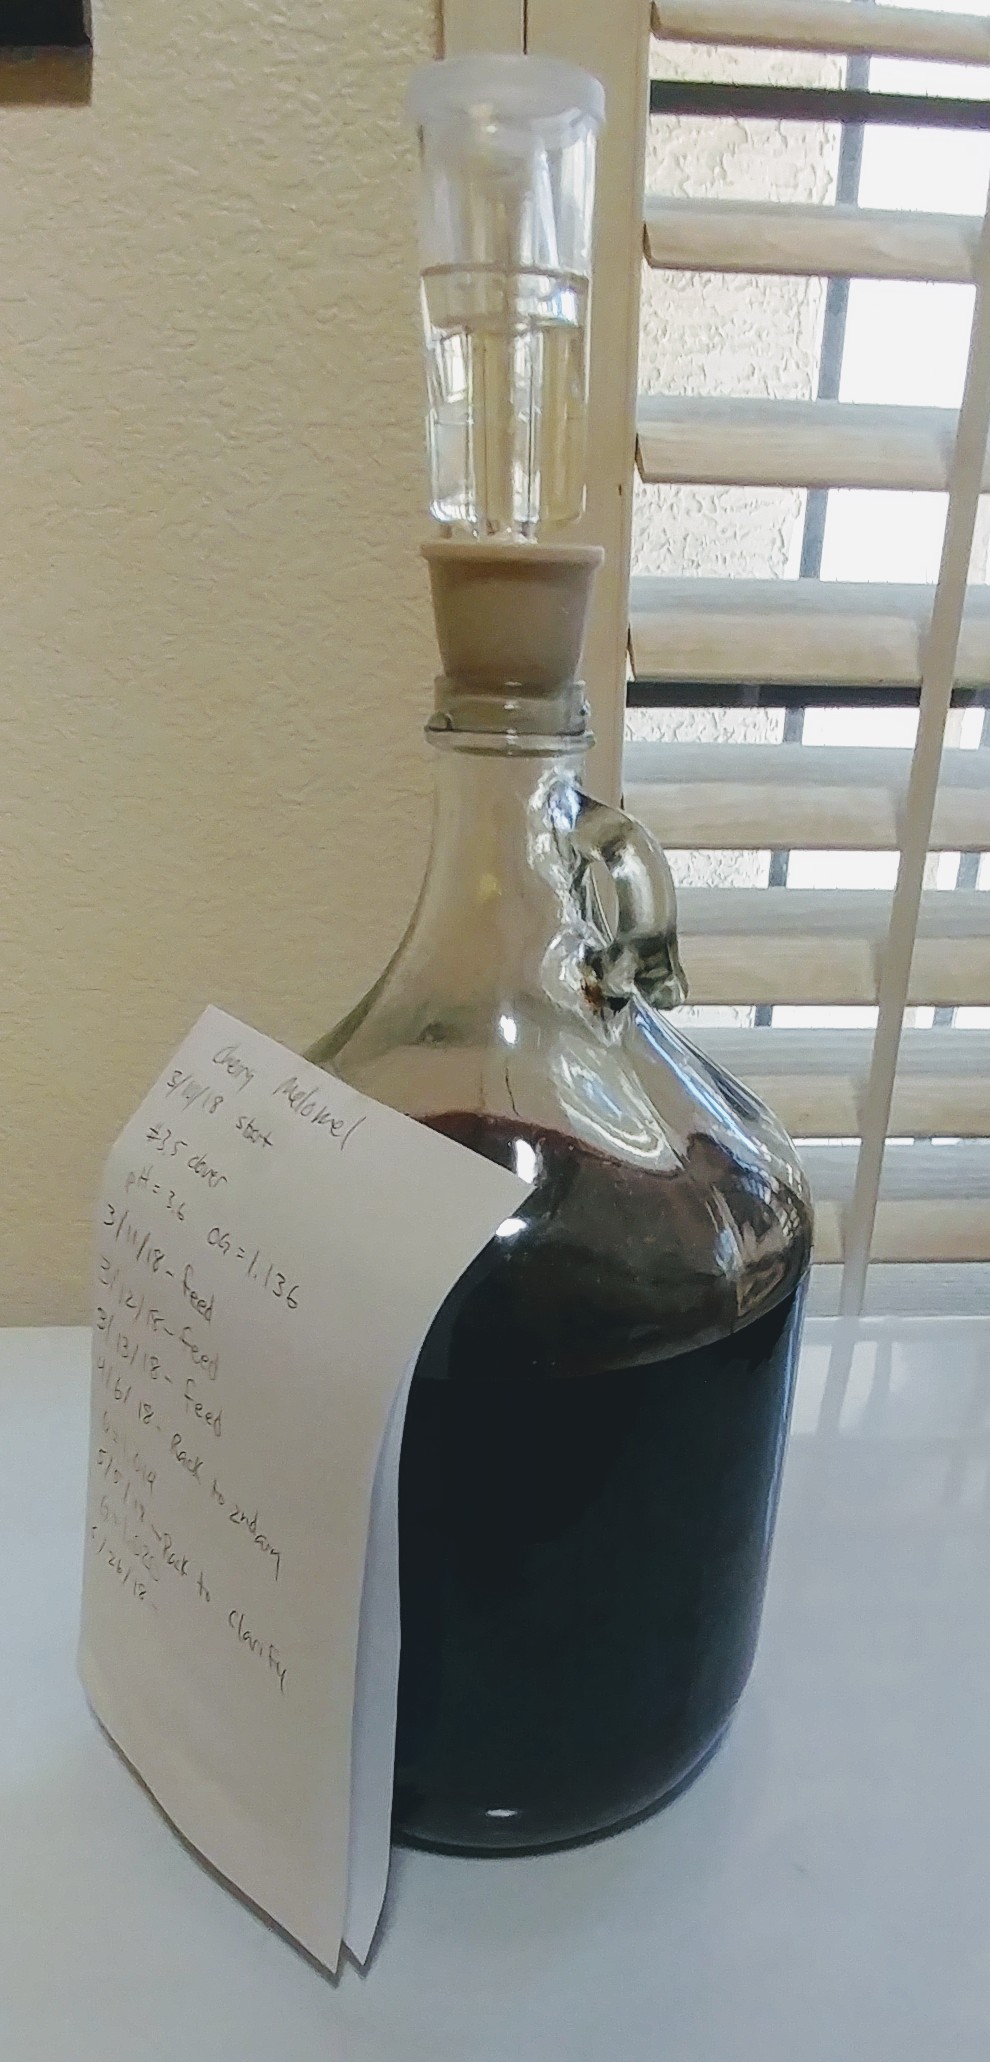 Cherry Melomel
3/10/18 start
#3.5 clover
pH = 3.6 OG = 1.136
3/11/18 - feed
3/12/18 - feed
3/13/18 - feed
4/6/18 - Rack to 2ndary
18 - Rack to clarify
/26/18 -